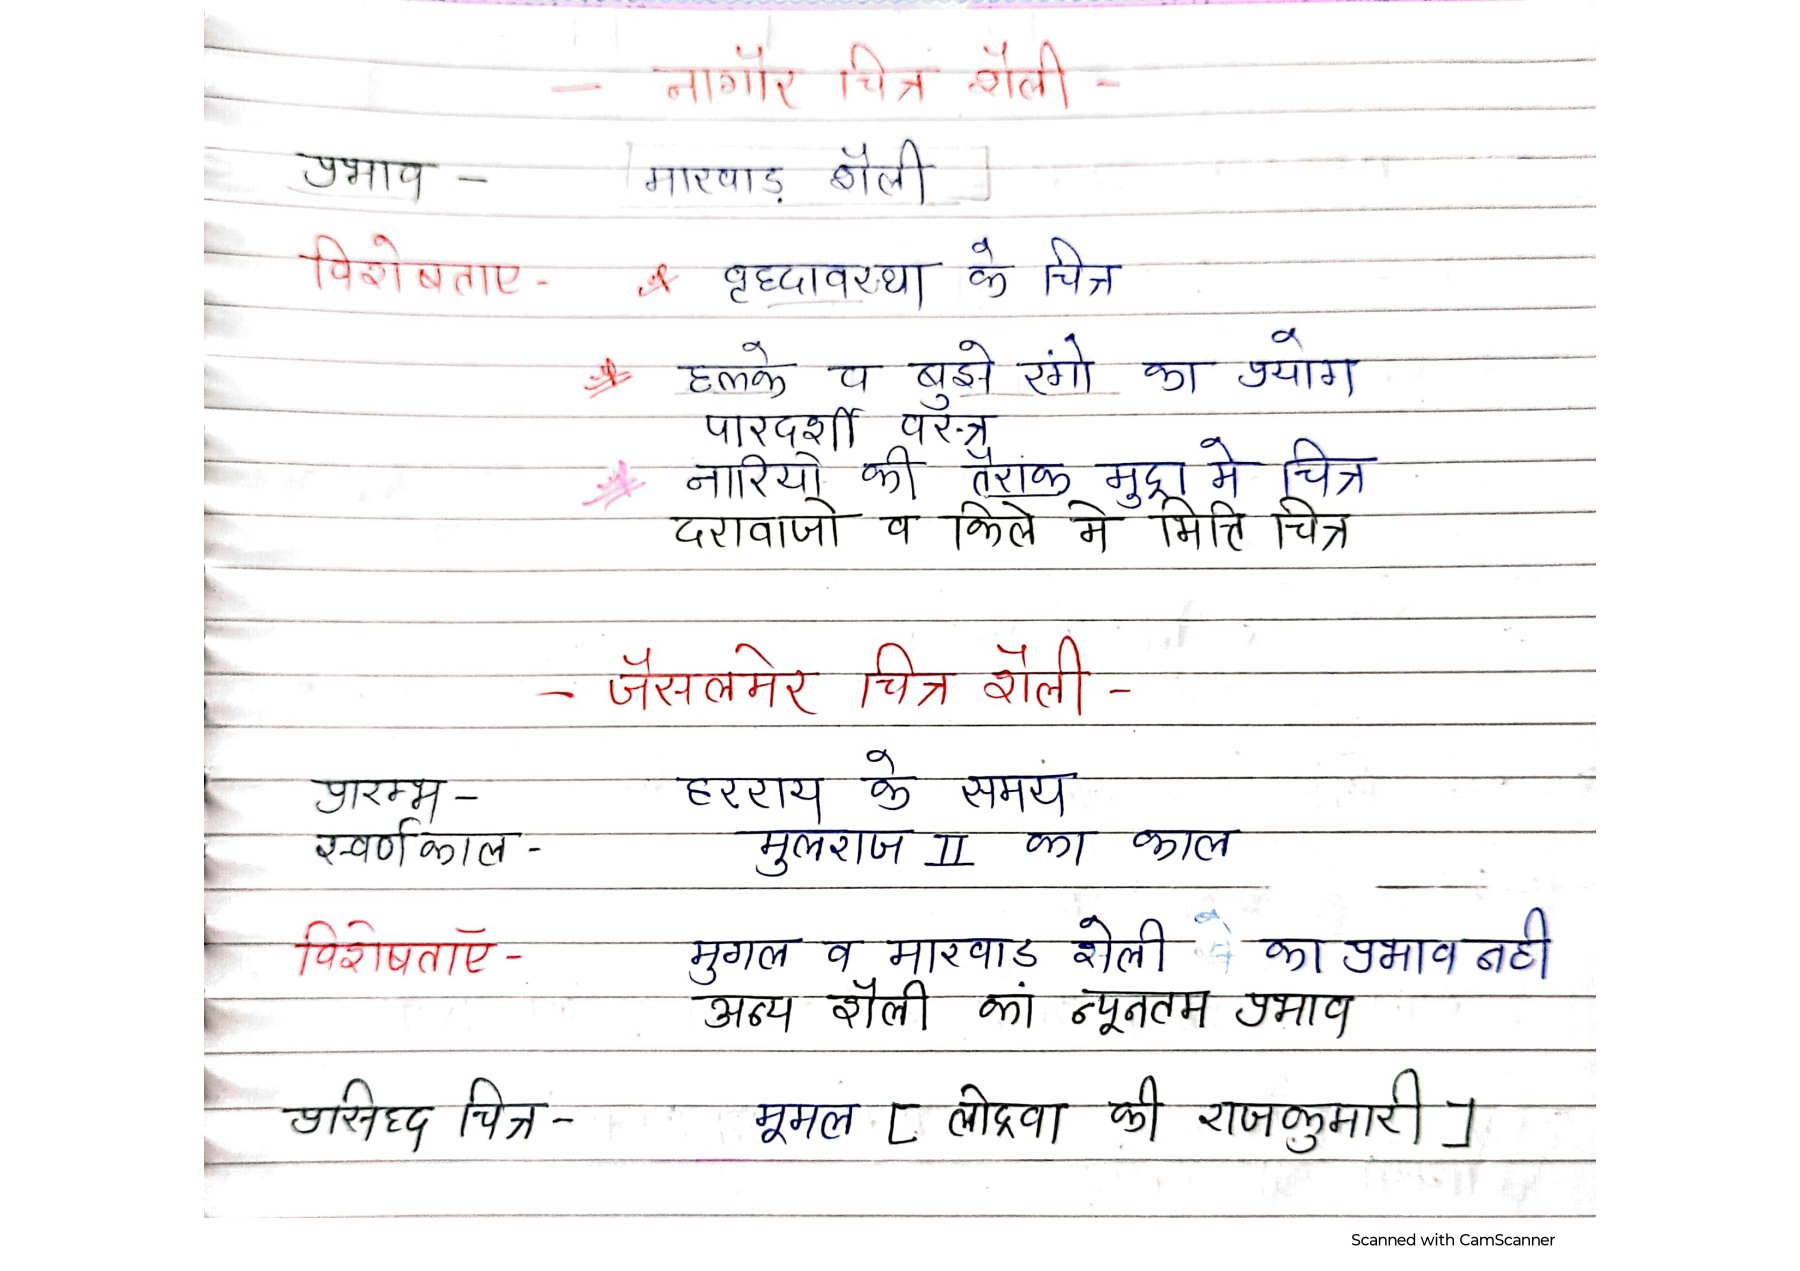 - नागौर चित्र शैली -
प्रभाव - मारवाड़ शैली
विशेषताए - * वृध्दावस्था के चित्र
* हलके व बुझे रंगो का प्रयोग
पारदर्शी वस्त्र
* नारियो की तैरांक मुद्रा मे चित्र
दरावाजो व किले मे भित्ति चित्र
- जैसलमेर चित्र शैली -
प्रारम्भ - हरराय के समय
स्वर्णकाल - मुलराज II का काल
विशेषताएँ - मुगल व मारवाड शैली का प्रभाव नही
अन्य शैली का न्यूनतम प्रभाव
प्रसिध्द चित्र - मूमल [ लोद्रवा की राजकुमारी ]
Scanned with CamScanner